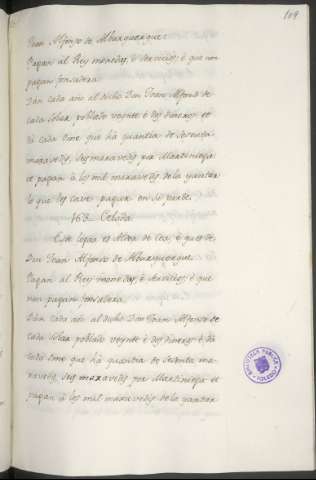 109
Juan Alfonso de Alburquerque.
Pagan al Rey monedas, è servicios, è que non
pagan fonsadera.
Dan cada año al dicho Don Juan Alfonso de
cada solar poblado veynte è dos dineros, et
dà cada ome que ha quantia de sesenta
maravedis, seis maravedis por Martiniega
et pagan à los mil maravedis de la yantar
lo que les cave pagar en su parte.
163 Celada.
Este logar es Aldea de Cea, è que es de
Don Juan Alfonso de Alburquerque.
Pagan al Rey monedas, è servicios, è que
non pagan fonsadera.
Dan cada año al dicho Don Juan Alfonso de
cada solar poblado veynte è dos dineros è dà
cada ome que ha quantia de sesenta ma-
ravedis, seis maravedis por Martiniega et
pagan à los mil maravedis de la yantar
BIBLIOTECA PUBLICA
TOLEDO